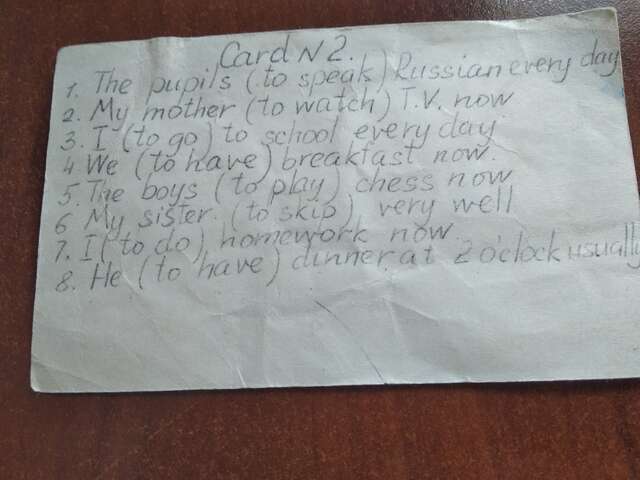 Card N 2.
1. The pupils (to speak) Russian every day
2. My mother (to watch) T.V. now
3. I (to go) to school every day
4 We (to have) breakfast now.
5. The boys (to play) chess now
6 My sister (to skip) very well
7. I (to do) homework now
8. He (to have) dinner at 2 o'clock usually